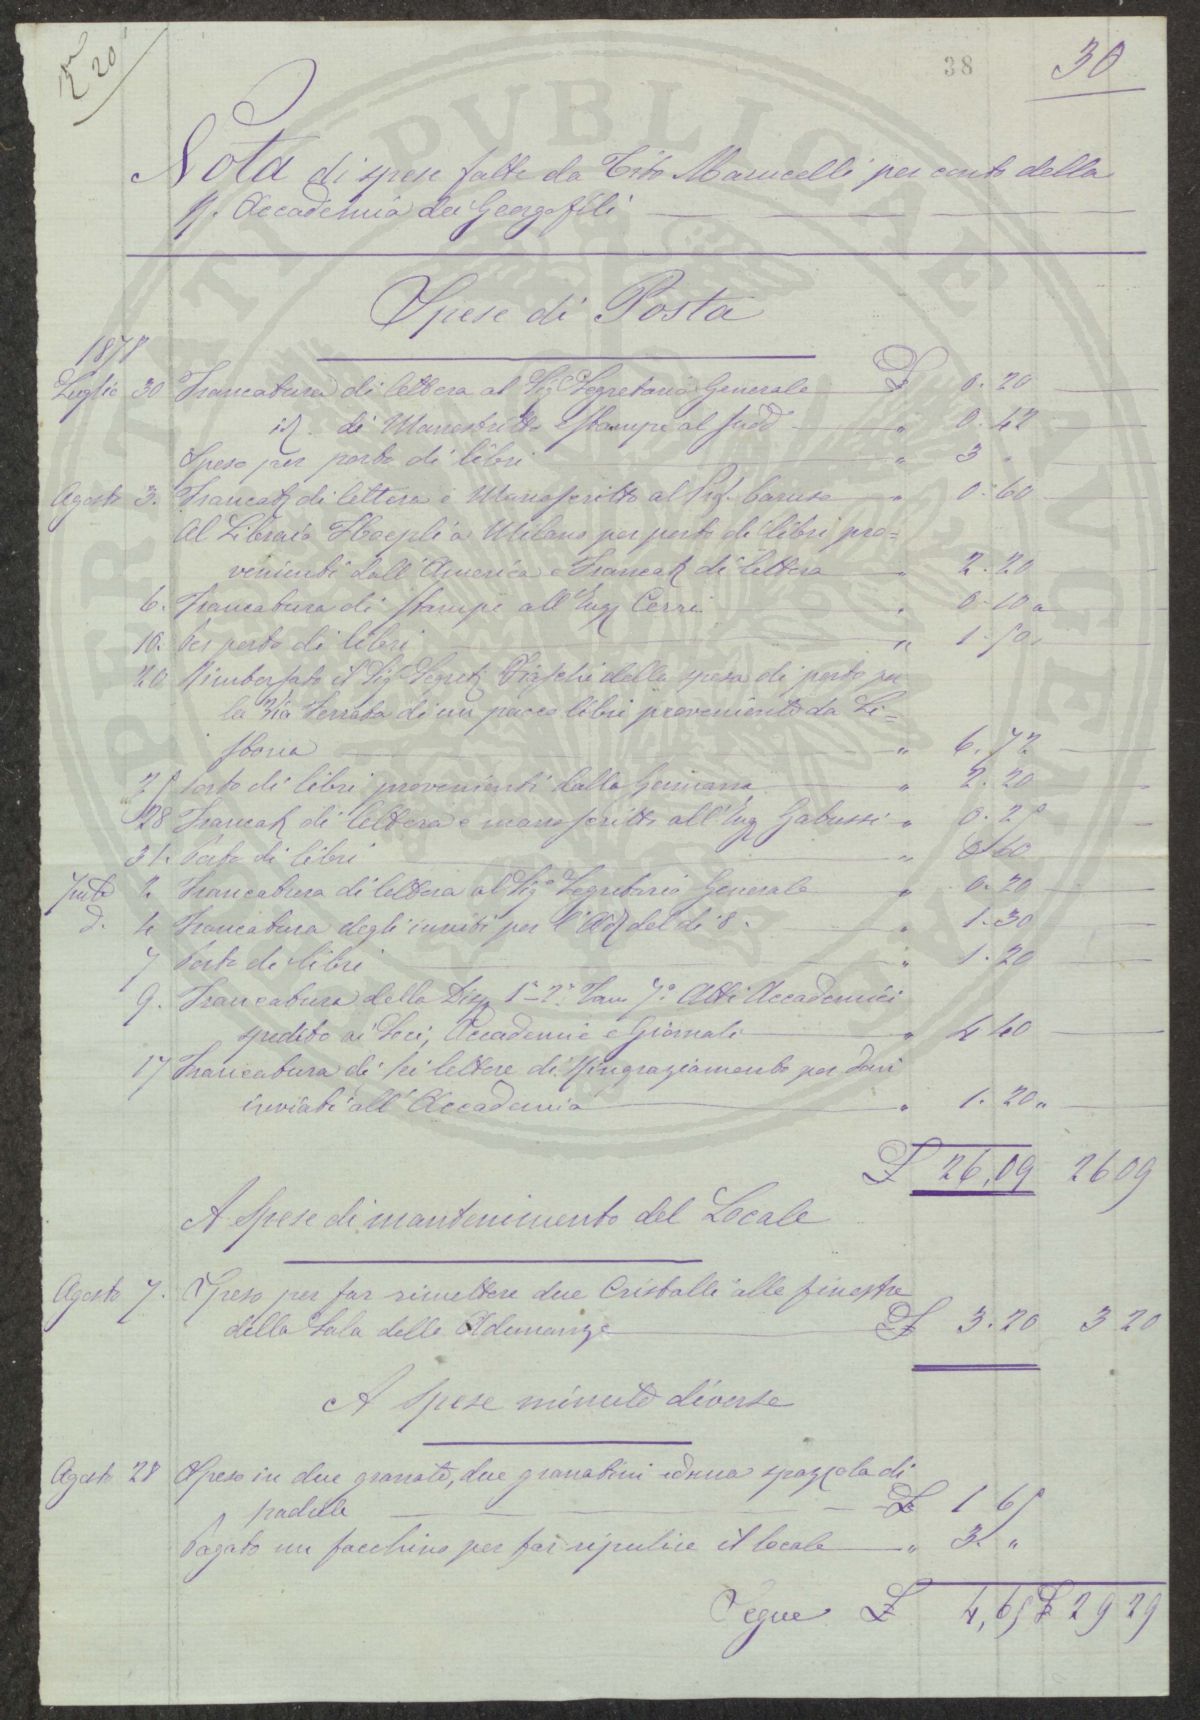 20
38
30
Nota di spese fatte da Tito Marucelli per conto della
R. Accademia dei Georgofili
Spese di Posta
1878
Luglio 30 Francatura di lettera al Sig. Segretario Generale £ 0.20
id. di Manoscritto e Stampe al sudd " 0.42
Speso per porto di libri " 3 "
Agosto 3. Francat. di lettera e Manoscritto al Prof. Caruso " 0.60
Al Libraio Hoepli a Milano per porto di libri pro=
venienti dall'America e Francat. di lettera " 2.20
6. Francatura di stampe all'Ing. Cerri " 0.10 "
10. Per porto di libri " 1.50 "
20 Rimborsato il Sig. Segret. della spesa di porto per
la Via Ferrata di un pacco libri proveniente da Li=
sbona " 6.72
25 Porto di libri provenienti dalla Germania " 2.20
28 Francat. di lettera e manoscritto all'Ing. Gabussi " 0.25
31. Porto di libri " 0.60
2 Francatura di lettera al Sig. Segretario Generale " 0.20
d. 4 Francatura degli inviti per l'Ad. del dì 8. " 1.30
7 Porto di libri " 1.20
9. Francatura della Disp. 1ª-2ª Tom. 7º Atti Accademici
spedito ai Soci, Accademie e Giornali " 4 40
17 Francatura di sei lettere di Ringraziamento per doni
inviati all'Accademia " 1.20 "
£ 26,09 26 09
A Spese di mantenimento del Locale
Agosto 7. Speso per far rimettere due Cristalli alle finestre
della Sala delle Adunanze £ 3.20 3 20
A Spese minute diverse
Agosto 28 Speso in due granate, due granatini ed una spazzola di
padule £ 1 65
Pagato un facchino per far ripulire il locale " 3. "
Segue £ 4,65 £ 29 29
PERITATI PUBLICAE AUGENDAE